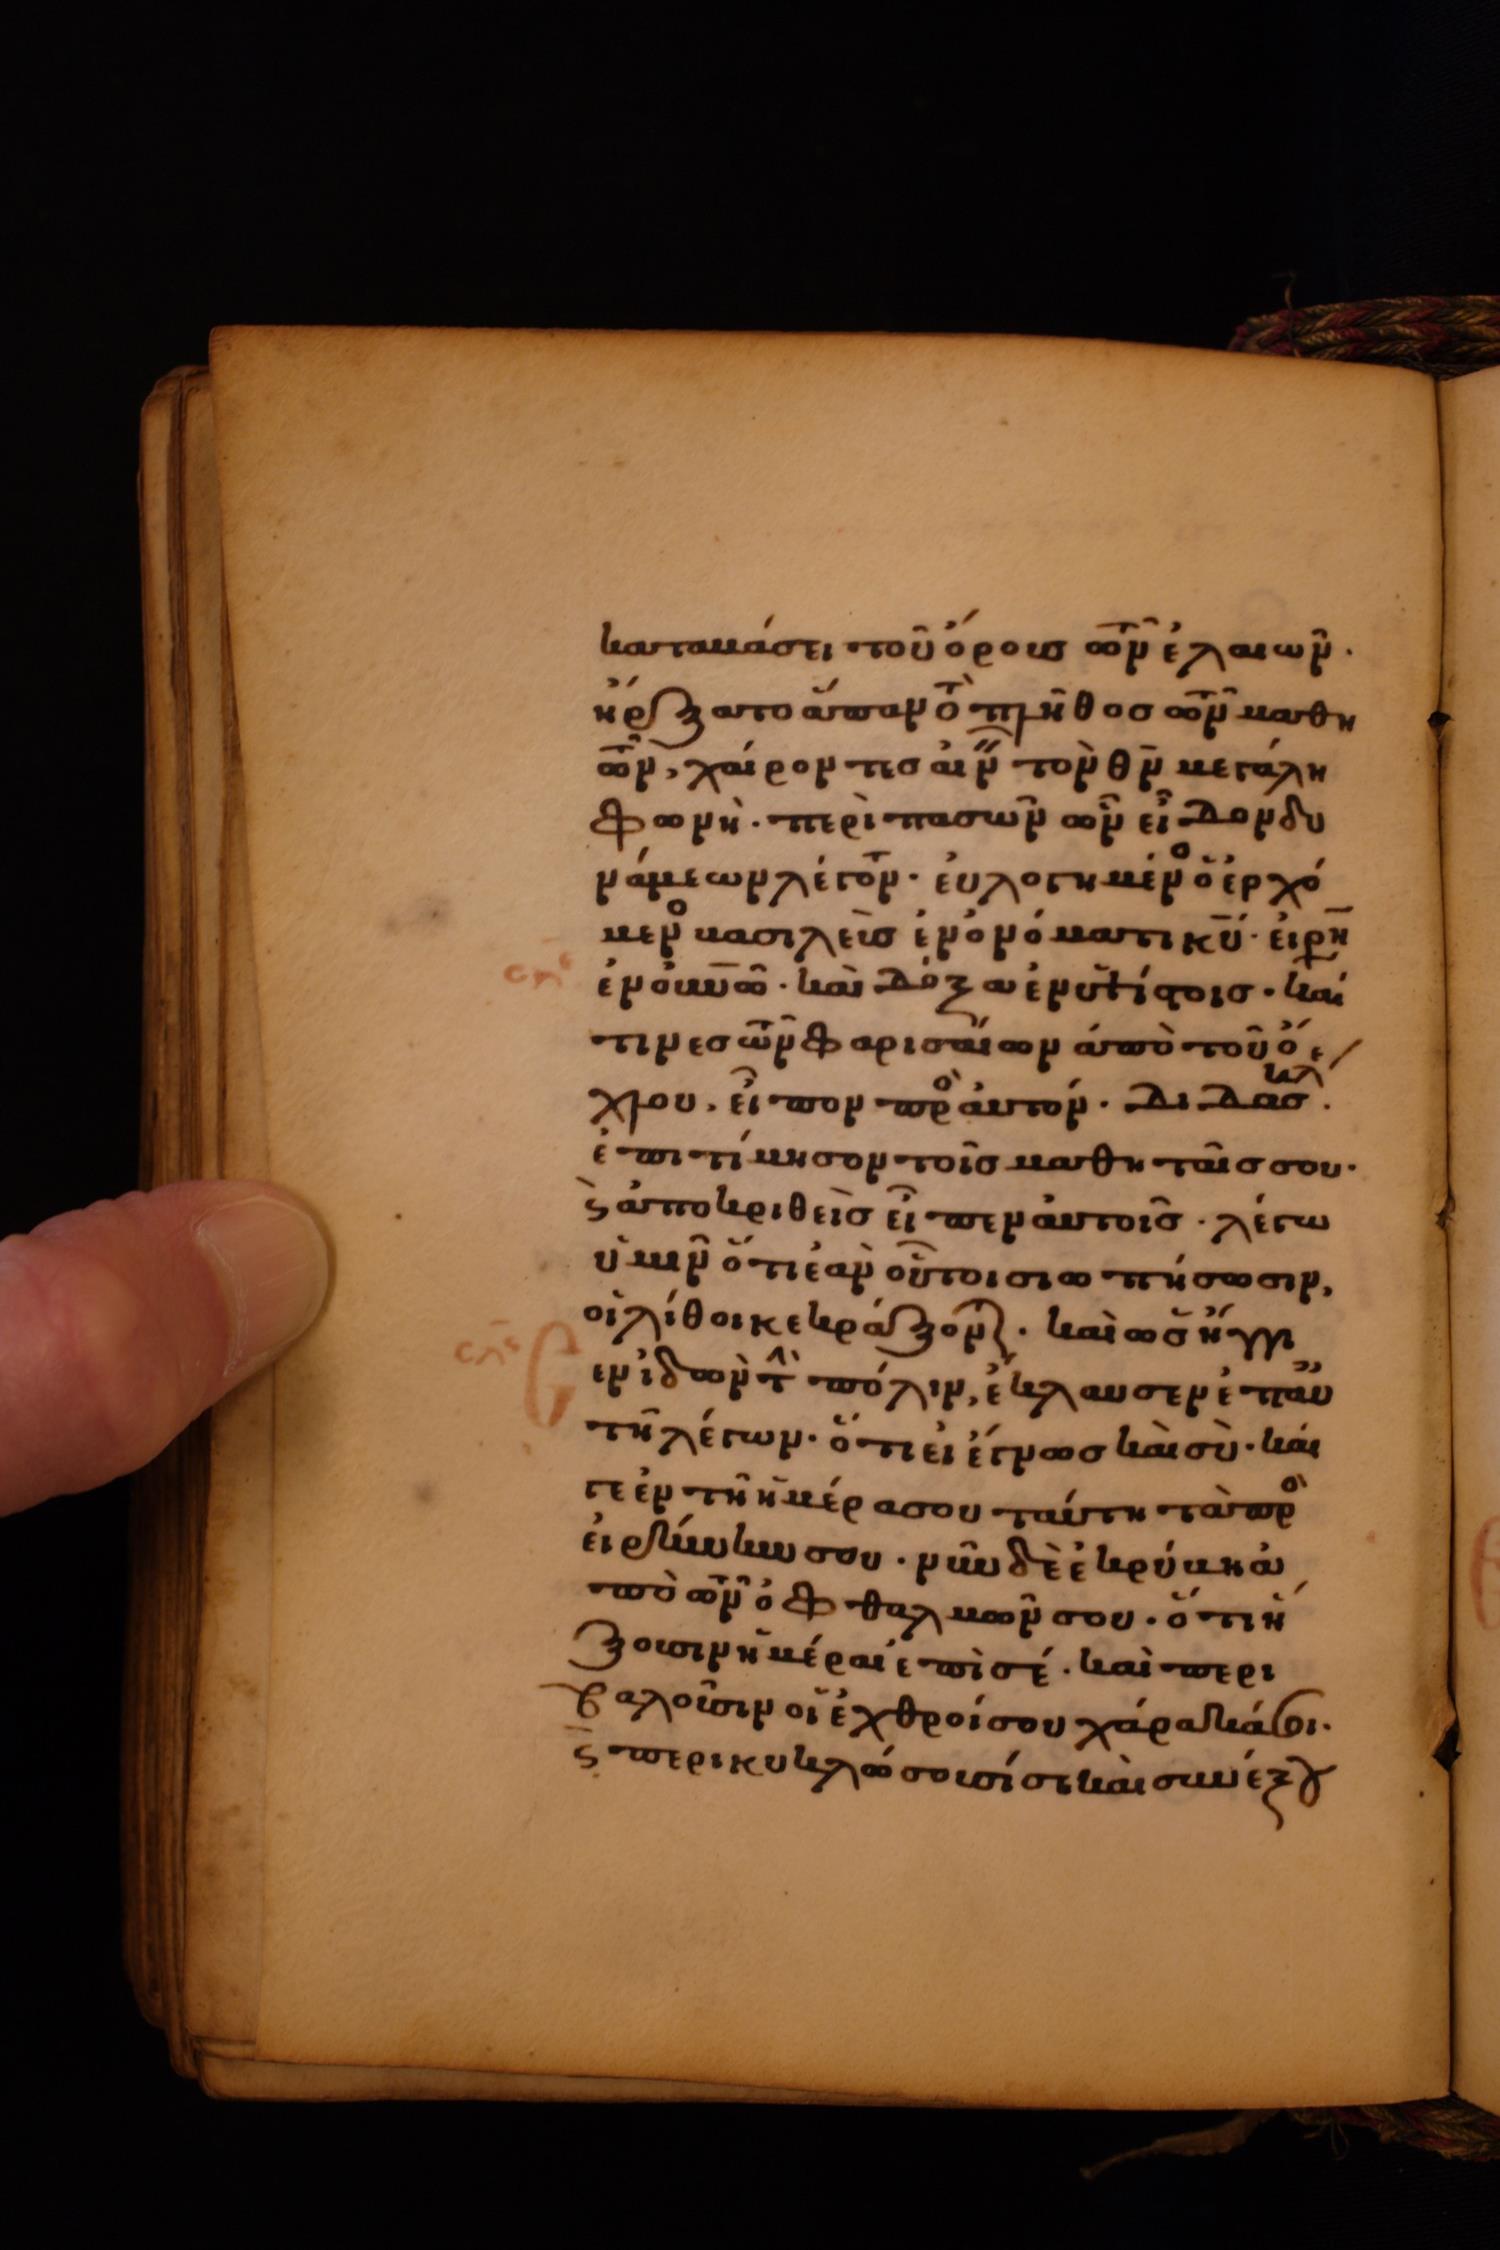 καταβάσει τοῦ ὄρους τῶν ἐλαιῶν·
ἤρξατο ἅπαν τὸ πλῆθος τῶν μαθη
τῶν, χαίροντες αἰνεῖν τὸν θν μεγάλη
φωνῆ· περὶ πασῶν ὧν εἶδον δυ
νάμεων λέγοντ· εὐλογημένος ὁ ἐρχό
μενος βασιλεὺς ἐν ὀνόματι κυ· εἰρήν
ἐν οὐνω· καὶ δόξα ἐν ὑψίστοις· καί
τινες τῶν φαρισαίων ἀπὸ τοῦ ὄ
χλου, εἶπον πρὸς αὐτόν· διδάσκαλ
ἐπιτίμησον τοῖς μαθηταῖς σου·
ϛ ἀποκριθεὶς εἶπεν αὐτοῖς· λέγω
ὑμῖν ὅτι ἐὰν οὗτοι σιωπήσωσιν,
οἱ λίθοι κεκράξοντ· καὶ ὡς ἤγγι
εν ἰδὼν τὴν πόλιν, ἔκλαυσεν ἐπ αὐ
τῆ λέγων· ὅτι εἰ ἔγνως καὶ σὺ· καί
γε ἐν τῆ ἡμέρα σου ταύτη τὰ πρὸς
εἰρήνην σου· νῦν δὲ ἐκρύβη ἀ
πὸ τῶν ὀφθαλμῶν σου· ὅτι ἥ
ξουσιν ἡμέραι ἐπὶ σέ· καὶ περι
βαλοῦσιν οἱ ἐχθροί σου χάρακά σοι·
ϛ περικυκλώσουσί σε καὶ συνέξου